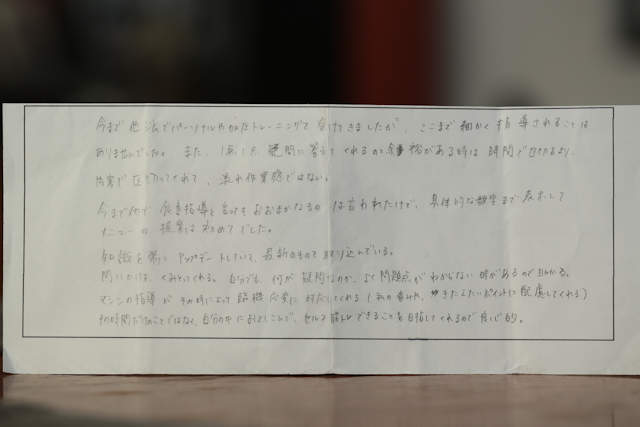 今まで他店でパーソナルや加圧トレーニングを受けてきましたが、ここまで細かく指導されることは
ありませんでした。また、1点1点 疑問に答えてくれるのと 時は 時間で
区切ってくれて、流れ作業感ではない。
今まで他で食事指導を受けてもおおまかなものは言われたけど、具体的な数字まで表示して
提案は初めてでした。
知識を常にアップデートしていて、最新のものを取り込んでいる。
問いかけは、くみとってくれる。自分でも、何が疑問なのか、よく問題点がわからない時があるので助かる。
マシンの指導がその時によって臨機応変に対応してくれる(私の癖や、効きたらたいポイントに配慮してくれる)
その時間だけのことではなく、自分の中におとしこんで、セルフ筋トレできることを目指してくれるので良心的。